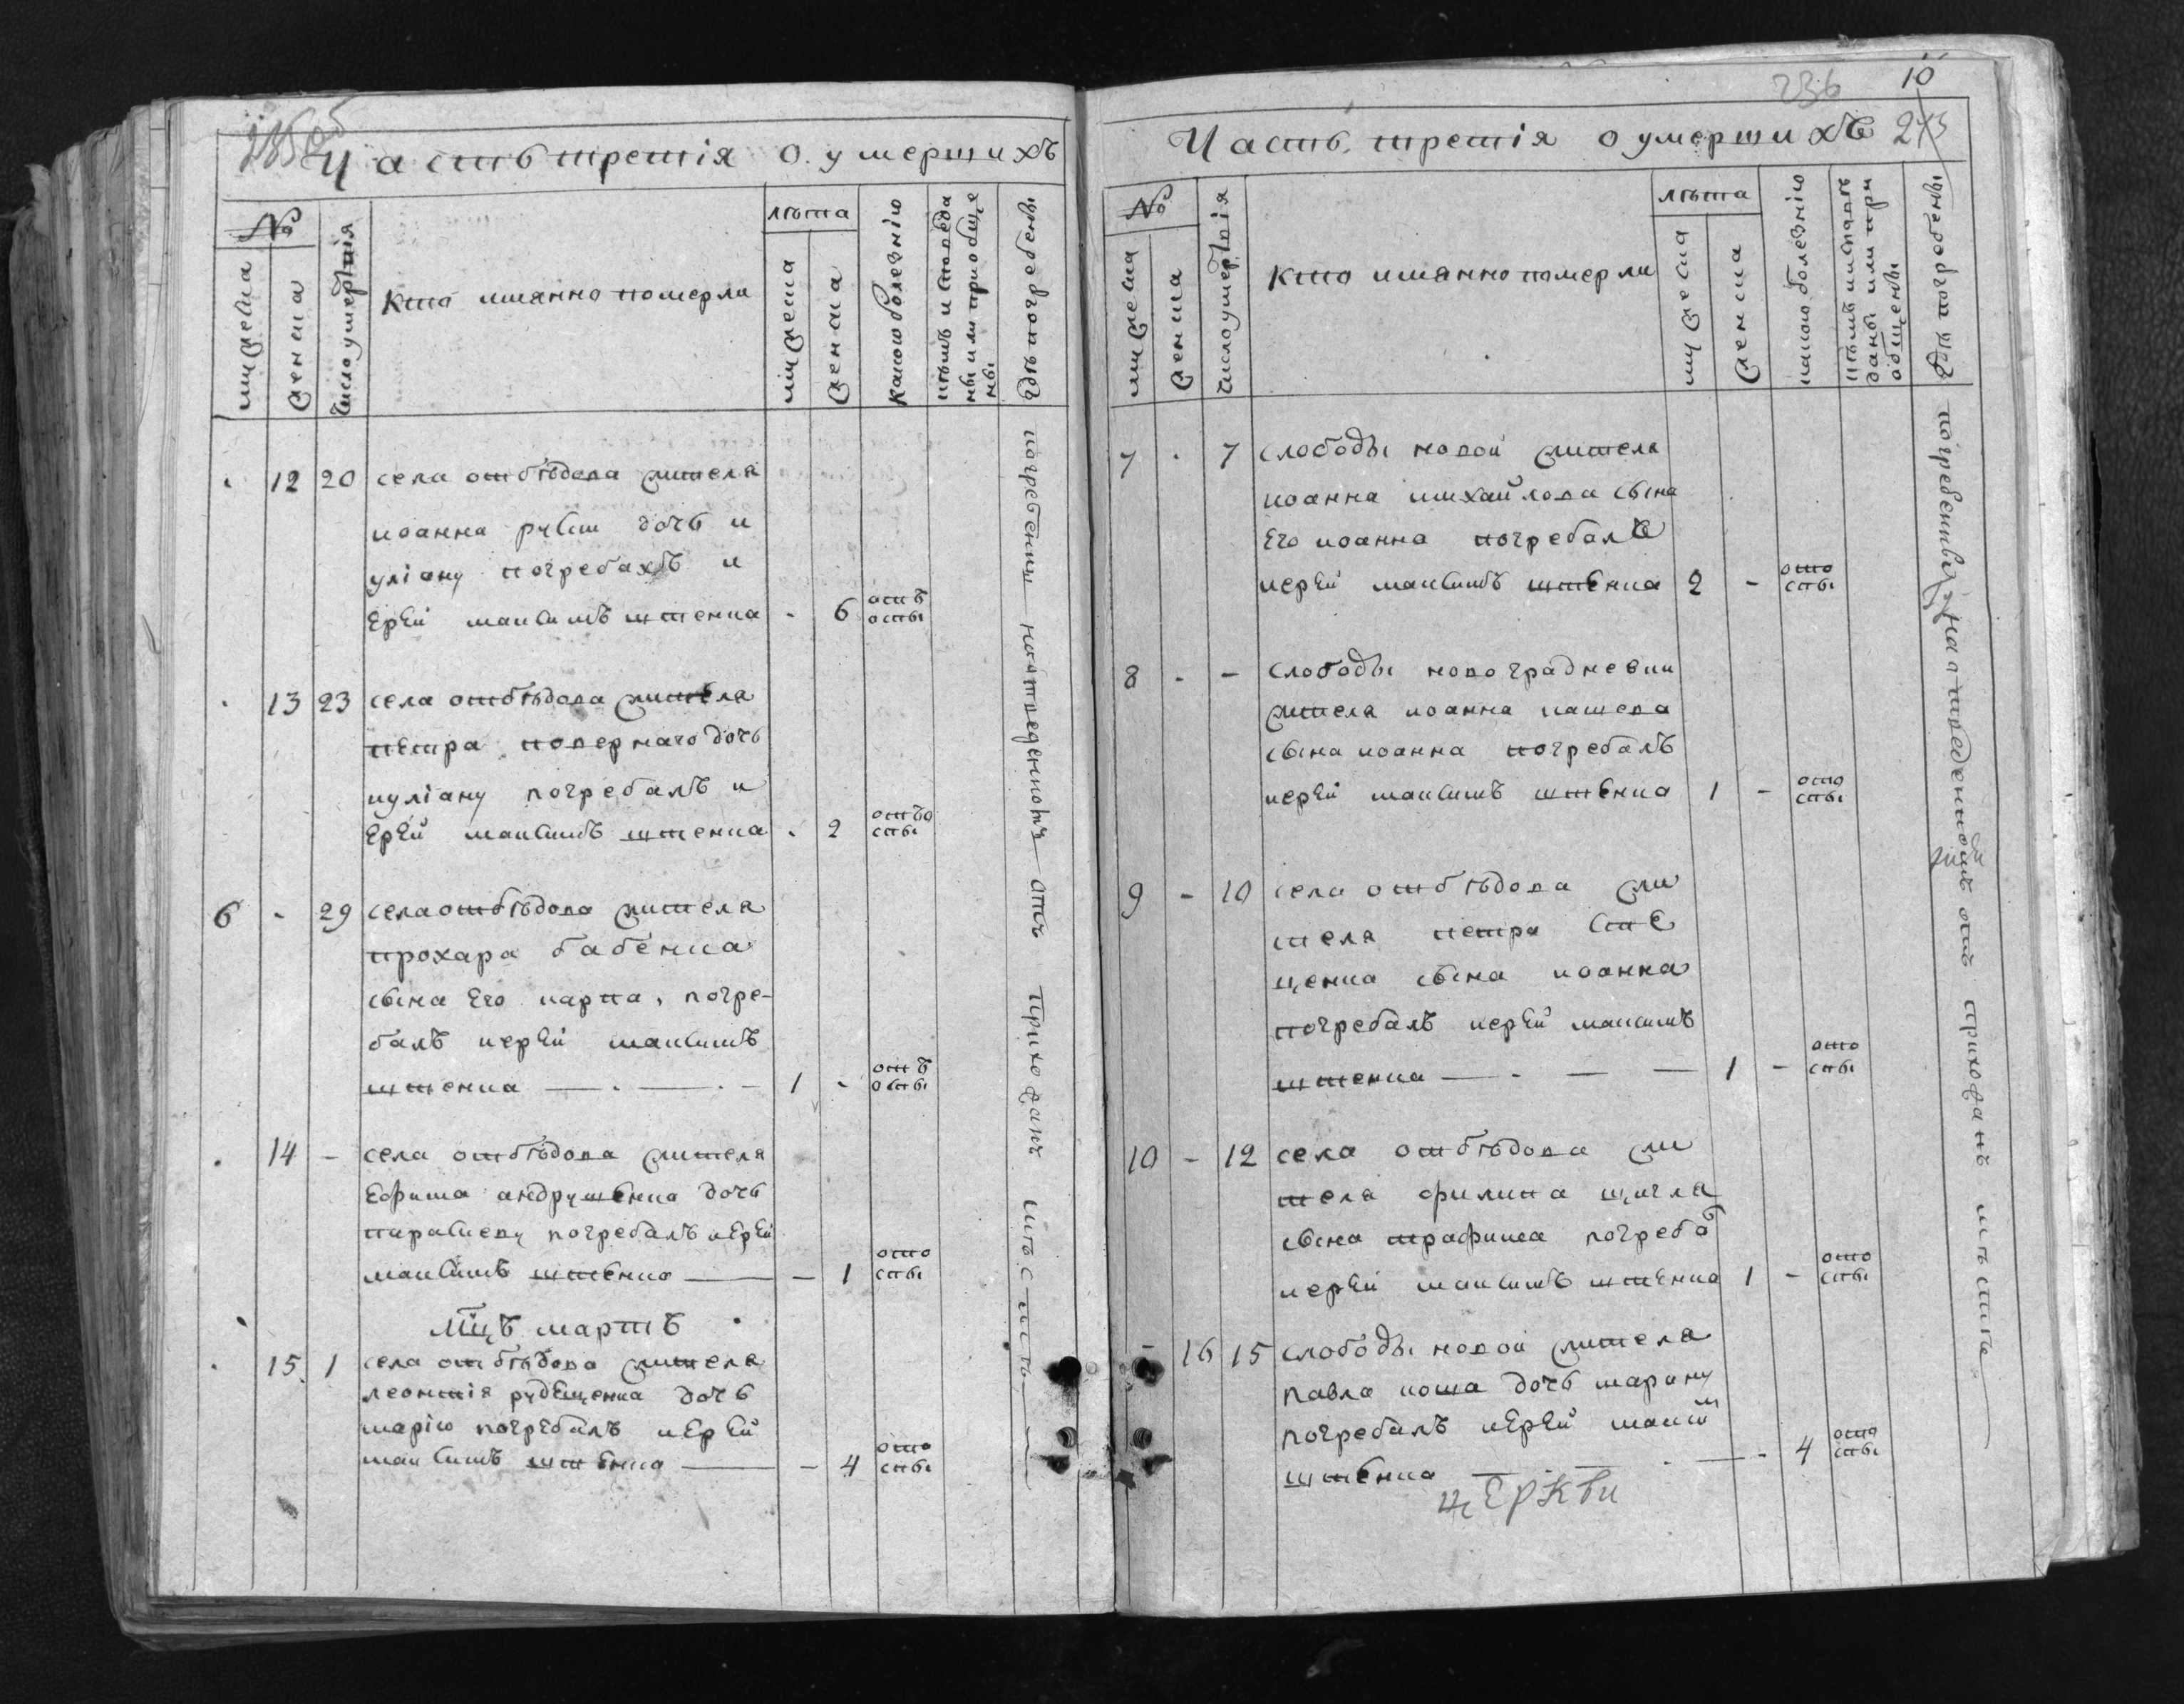 Часть третія о умершихъ
№
мужеска
женска
число умертвія
кто имянно померли
лѣта
мужеска
женска
какою болезнію
кѣмъ исповеда
ны или приобще
ны
гдѣ погребены
12 20 села отбѣдова жителя
иоанна дочь и
уліану погребалъ и
ерей максимъ штенка - 6 отъ
оспы
13 23 села отбѣдова жителя
петра повернаго дочь
иуліану погребалъ и
ерей максимъ штенка 2 отъо
спы
6 - 29 села отбѣдова жителя
прохара бабенка
сына его карпа, погре-
балъ иерей максимъ
штенка 1 - отъ
оспы
14 - села отбѣдова жителя
ефима андрушенка дочь
параскеву погребалъ иерей
максимъ штенка - 1 ото
спы
Мцъ мартъ
15 1 села отбѣдова жителя
леонтія рудещенка дочь
марію погребалъ иерей
максимъ штенка - 4 ото
спы
погребении наотведенномъ отъ приходанъ мѣстѣ
236
10
Часть третія о умершихъ 243
№
мужеска
женска
число умертвія
кто имянно померли
лѣта
мужеска
женска
какою болезнію
кѣмъ исповѣ
даны или при
общены
гдѣ погребены
7 - 7 слободы новой жителя
иоанна михайлова сына
его иоанна погребалъ
иерей максимъ штенка 2 - ото
спы
8 - - слободы новоградневки
жителя иоанна кашева
сына иоанна погребалъ
иерей максимъ штенка 1 - ото
спы
9 - 10 села отбѣдова жи
теля петра сте
ценка сына иоанна
погребалъ иерей максимъ
штенка 1 - ото
спы
10 - 12 села отбѣдова жи
теля филипа щигла
сына трафима погреба
иерей максимъ штенка 1 - ото
спы
- 16 15 слободы новой жителя
павла коша дочь марину
погребалъ иерей максим
штенка - 4 ото
спы
церкви
погребенны наотведенномъ отъ приходанъ мѣстѣ